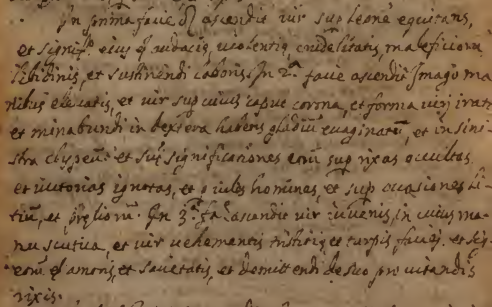 In prima facie ♌ ascendit vir sup leone equitans,
et signif. eius est audacię, violentię, crudelitatis, maleficiorū
libidinis, et sustinendi labores. In 2ª facie ascendit Imago ma
nibus elevatis, et vir sup cuius caput corona, et forma viri irati
et minabundi in dextera habens gladiū evaginatū, et in sini
stra clypeū et sūt significationes eorū sup rixas occultas
et victorias ignotas, et viles homines, et sup occasiones li
tiū, et pręliorū. In 3ª fa. ascendit vir iuvenis, in cuius ma
nu scutica, et vir vehementis tristitię et turpis faciei. et sig.
eorū est amoris et societatis, et domittendi de suo pro vitandis
rixis.